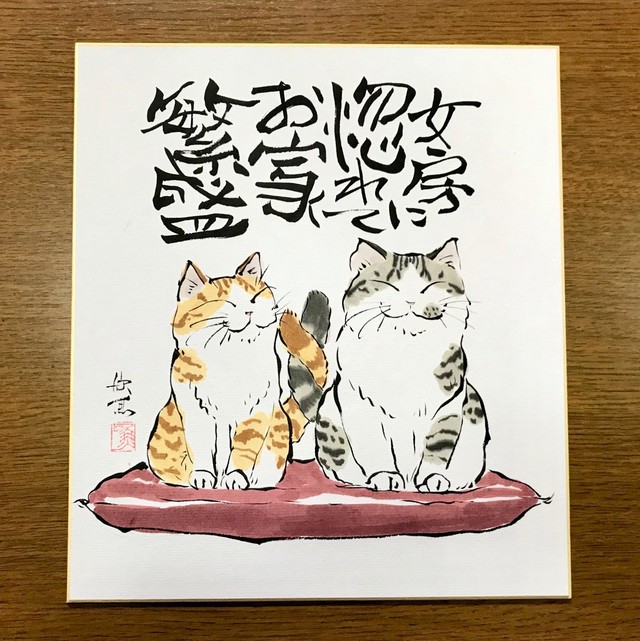 女房に
惚れて
お家
繁盛